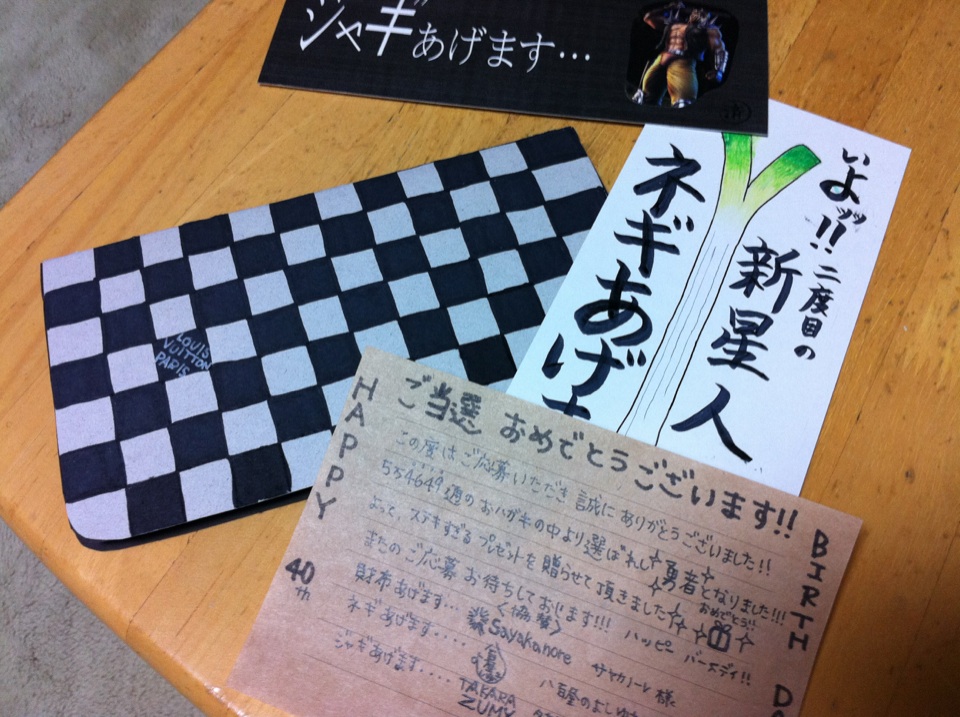 ジャギあげます…
いよッッ!!二度目の
新星人
ネギあげ
LOUIS
VUITTON
PARIS
ご当選 おめでとうございます!!
この度はご応募いただき 誠にありがとうございました!!
554649通のおハガキの中より選ばれし勇者となりました!!!
おめでとう!!
よって、ステキすぎるプレゼントを贈らせて頂きました
またのご応募 お待ちしております!!! ハッピーバースデイ!!
<協賛>
財布あげます… Sayakanore サヤカノーレ 様
ネギあげます…… 八百屋の
ジャギあげます…… TAKARA
ZUMY
HAPPY
40th
BIRTH